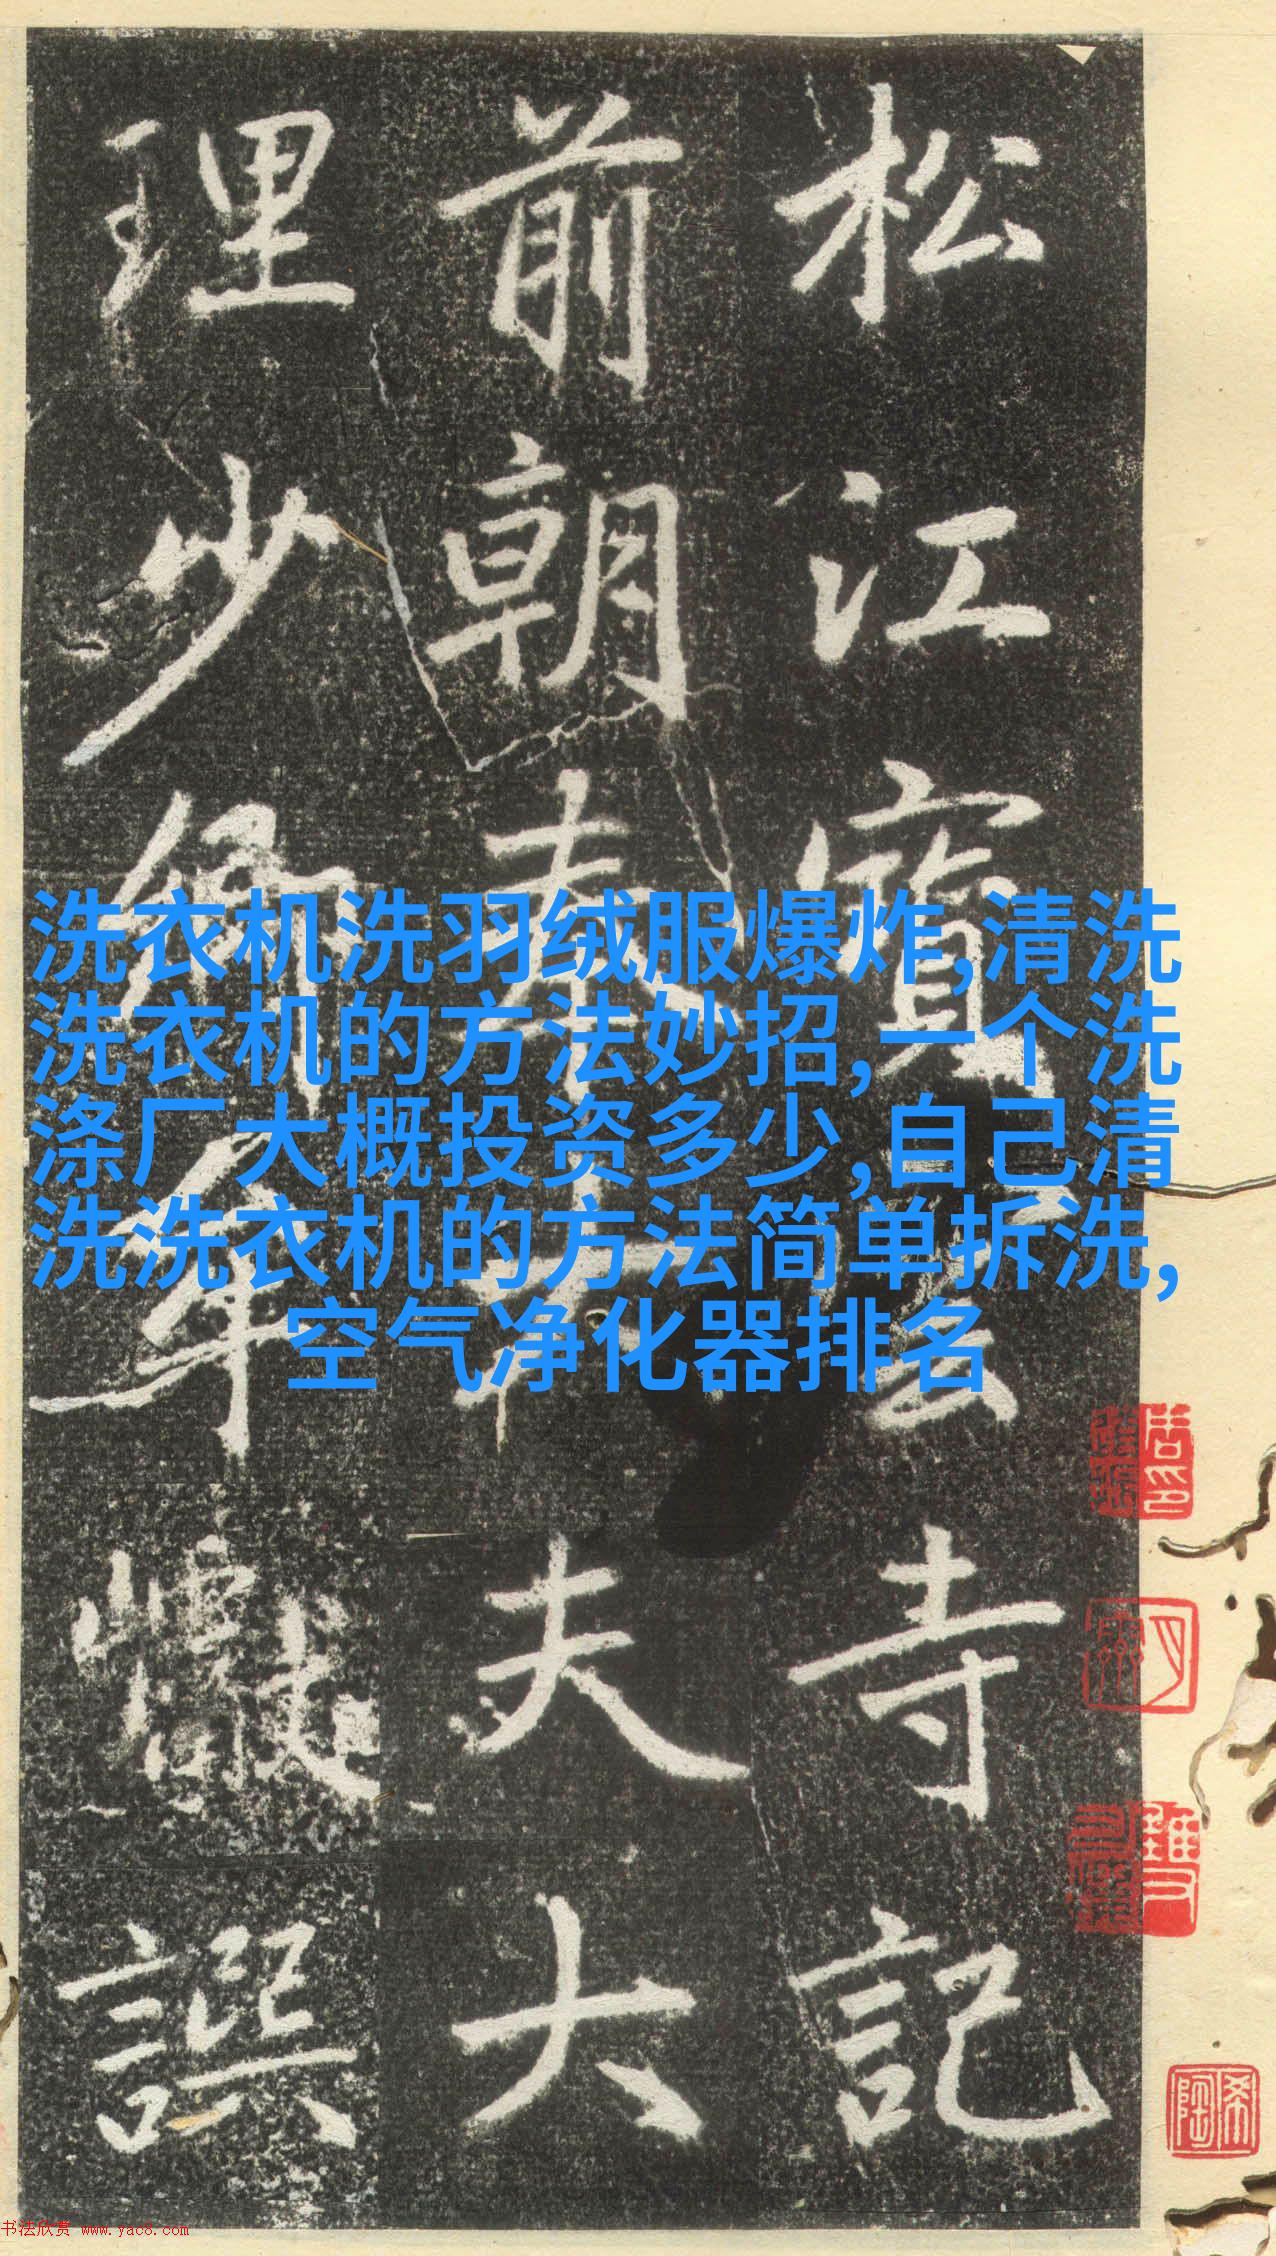 松江寶雲寺記
前朝奉夫大
理少卿牟巘譔
洗衣机洗羽绒服爆炸,清洗
洗衣机的方法妙招,一个洗
涤厂大概投资多少,自己清
洗洗衣机的方法简单拆洗,
空气净化器排名
书法欣赏 www.yac8.com